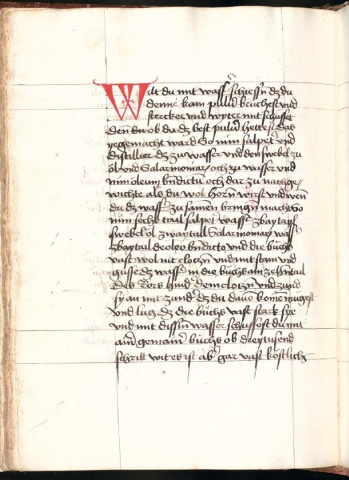 Wilt du mit wasser schiessen dz du
denne kain puluer bruchest und
stercker und wyter mit schussest
den du ob du dz best puluer hettest das
ye gemacht ward So nim salpeter und
distillier dz zu wasser und den swebel zu
öl und Salarmoniac och zu wasser und
nim oleum bndictu och dar zu nach ge
wichte als du wol hören wirst und wen
du dz wasser zu samen bringst macht So
nim sechs tail salpeter wasser zway tayl
swebel öl zway tayll Salarmoniac wasser
zway tail de oleo bndicto und die buchs
vast wol mit clotzen und mit stain und
gusse dz wasser in die buchs ain zehentail
des Rors hinder dem clotzen und zund
sy an mit zund dz du dauon komen mugest
und lug dz die buchs vast starck sye
und mit disem wasser schussest du mit
ainer gemainen buchs ob dreytusend
schritt wit es ist aber gar vast kostlich